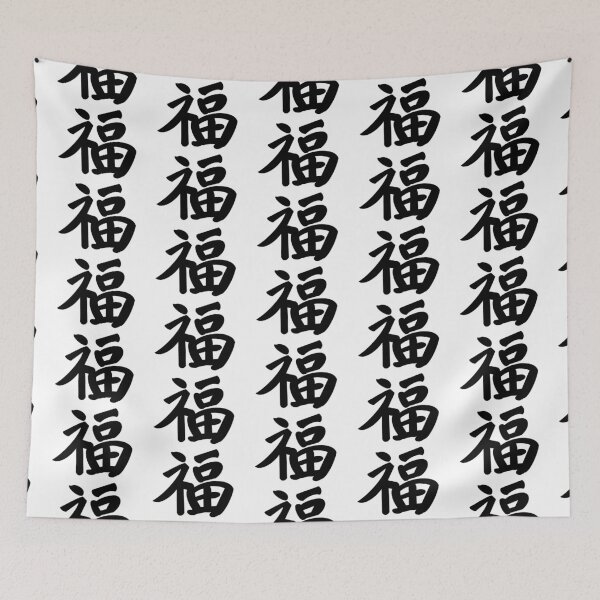 福福福福福福福
福福福福福福
福福福福福福福
福福福福福福
福福福福福福福